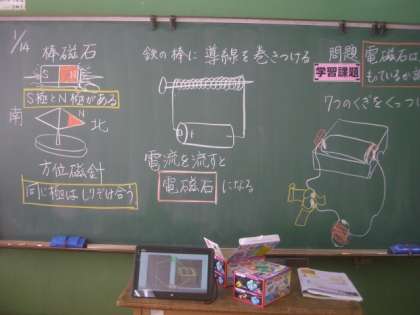 1/14
棒磁石
S N
S極とN極がある
N
南 北
方位磁針
同じ極はしりぞけ合う
鉄の棒に導線を巻きつける
電流を流すと
電磁石になる
問題 電磁石は
学習課題 もっているか
7つのくぎをくっつ